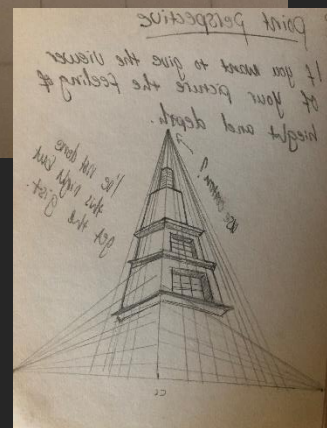 point perspective
If you want to give the viewer
of your picture the feeling of
hieght and depth.
I've not done
this right but
get the
gist.